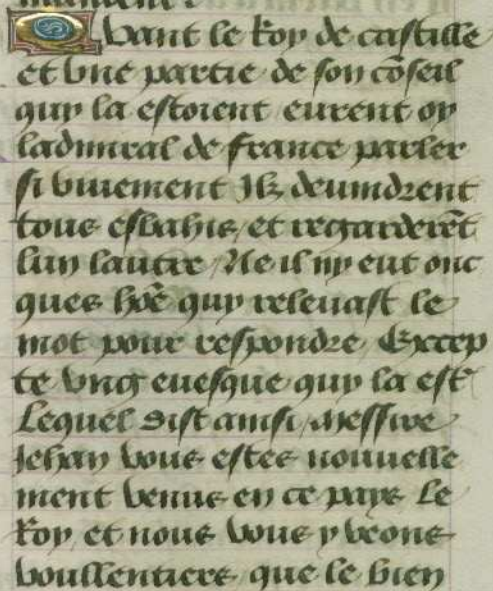 Quant le Roy de castille
et vne partie de son cõseil
quy la estoient / eurent oy
ladmiral de france parler
si viuement Ilz deuindrent
tous esbahis / et regarderẽt
lun lautre / Ne il ny eut onc
ques hõe quy releuast le
mot pour respondre / Excep
te vng euesque quy la est
Lequel dist ainsi / Messire
Jehan vous estes nouuelle
ment venus en ce pays Le
Roy et nous vous y veons
voullentiers / que le bien